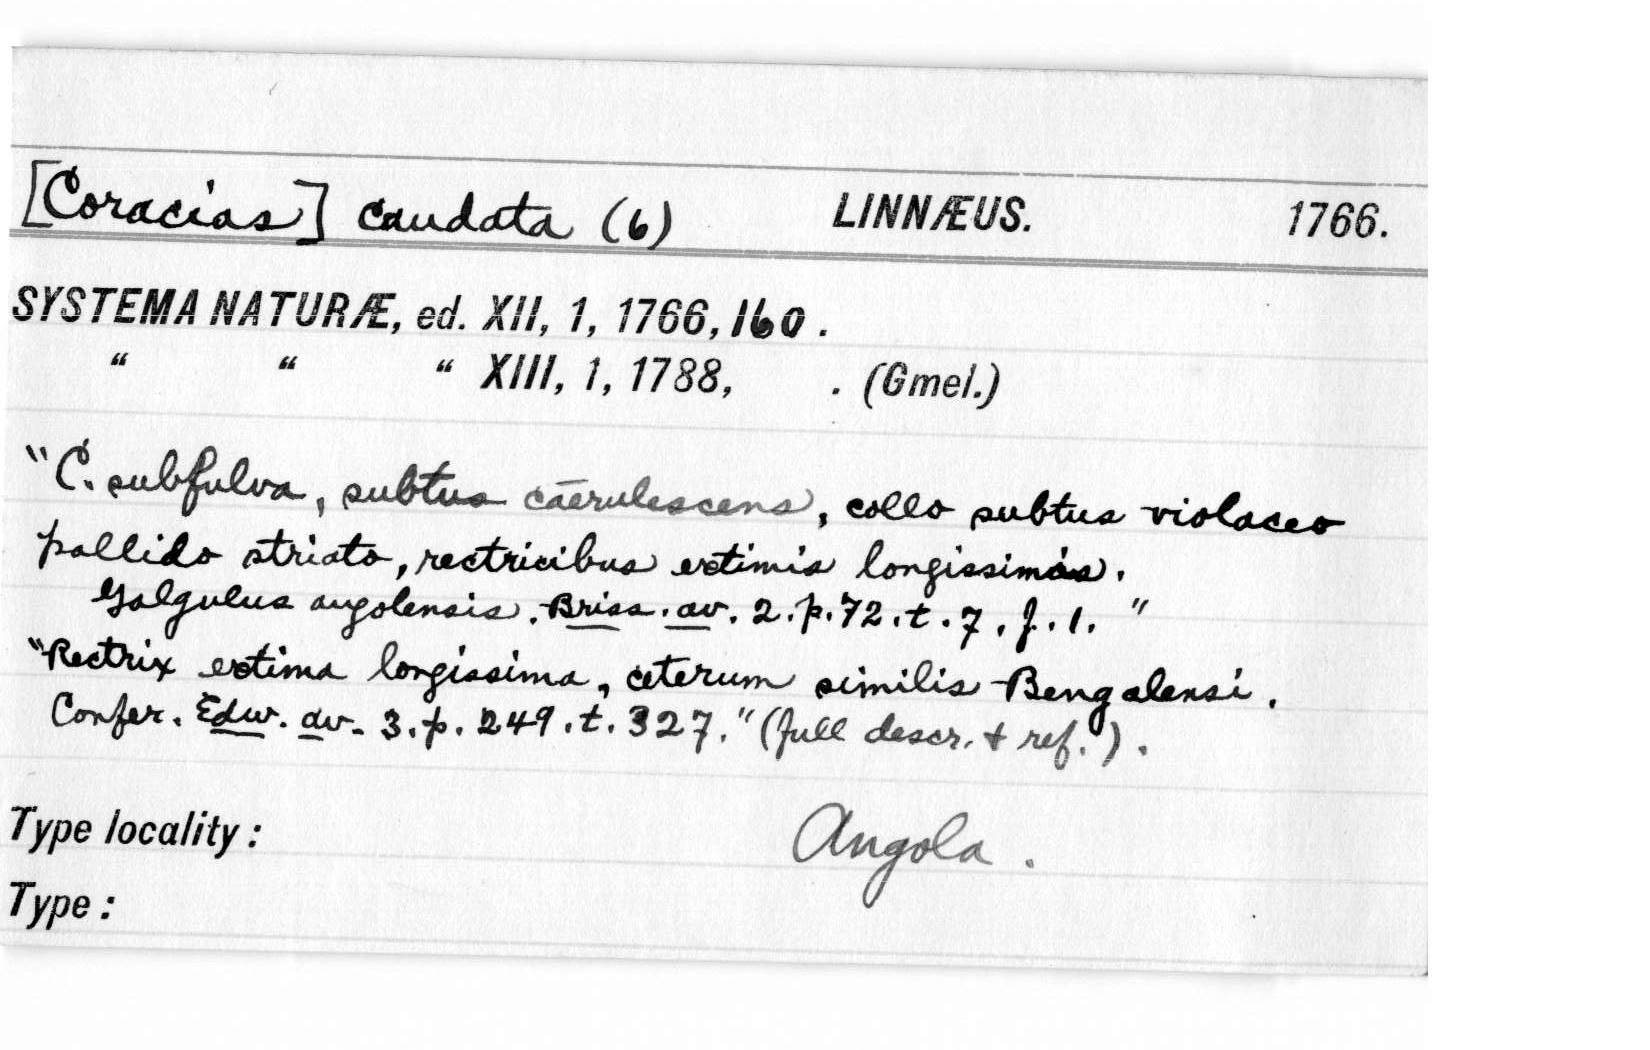 [Coracias] caudata (6) LINNÆUS. 1766.
SYSTEMA NATURÆ, ed. XII, 1, 1766, 160.
“ “ “ XIII, 1, 1788, . (Gmel.)
"C. subfulva, subtus caerulescens, collo subtus violaceo
pallido striato, rectricibus extimis longissimis.
Galgulus angolensis. Briss. av. 2. p. 72. t. 7. f. 1."
"Rectrix extima longissima, ceterum similis Bengalensi.
Confer. Edw. av. 3. p. 249. t. 327." (full descr. + ref.).
Type locality: Angola.
Type: